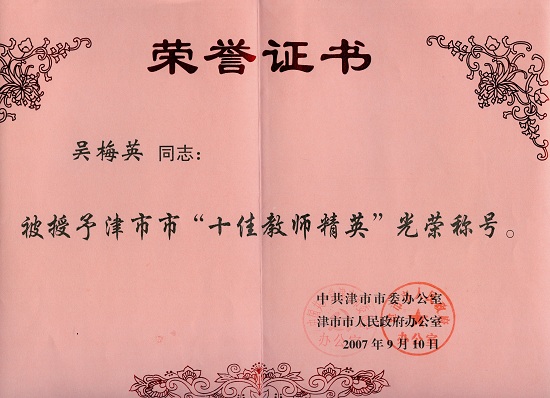 荣誉证书
吴梅英 同志：
被授予津市市“十佳教师精英”光荣称号。
中共津市市委办公室
津市市人民政府办公室
2007年9月10日
办公室
办公室